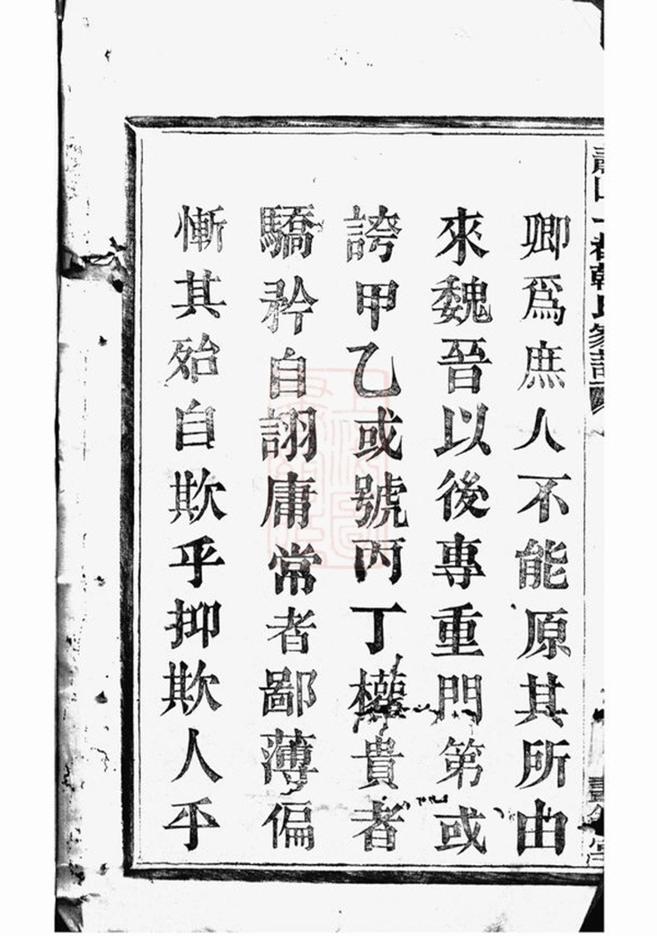 蕭山一都韓氏家譜
卿爲庶人不能原其所由
來魏晉以後專重門第或
誇甲乙或號丙丁權貴者
驕矜自詡庸常者鄙薄偏
慚其殆自欺乎抑欺人乎